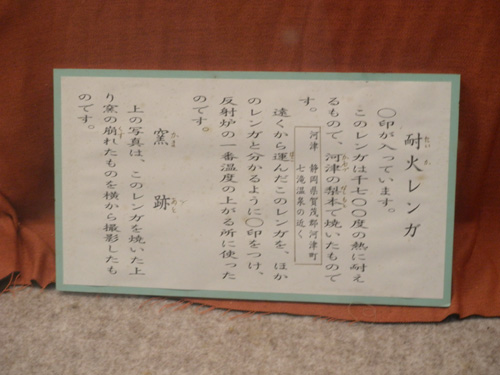 耐火レンガ
〇印が入っています。
このレンガは千七〇〇度の熱に耐え
るもので、河津の梨本で焼いたもので
す。
河津 静岡県賀茂郡河津町
七滝温泉の近く
遠くから運んだこのレンガを、ほか
のレンガと分かるように〇印をつけ、
反射炉の一番温度の上がる所に使った
のです。
窯跡
上の写真は、このレンガを焼いた上
り窯の崩れたものを横から撮影したも
のです。